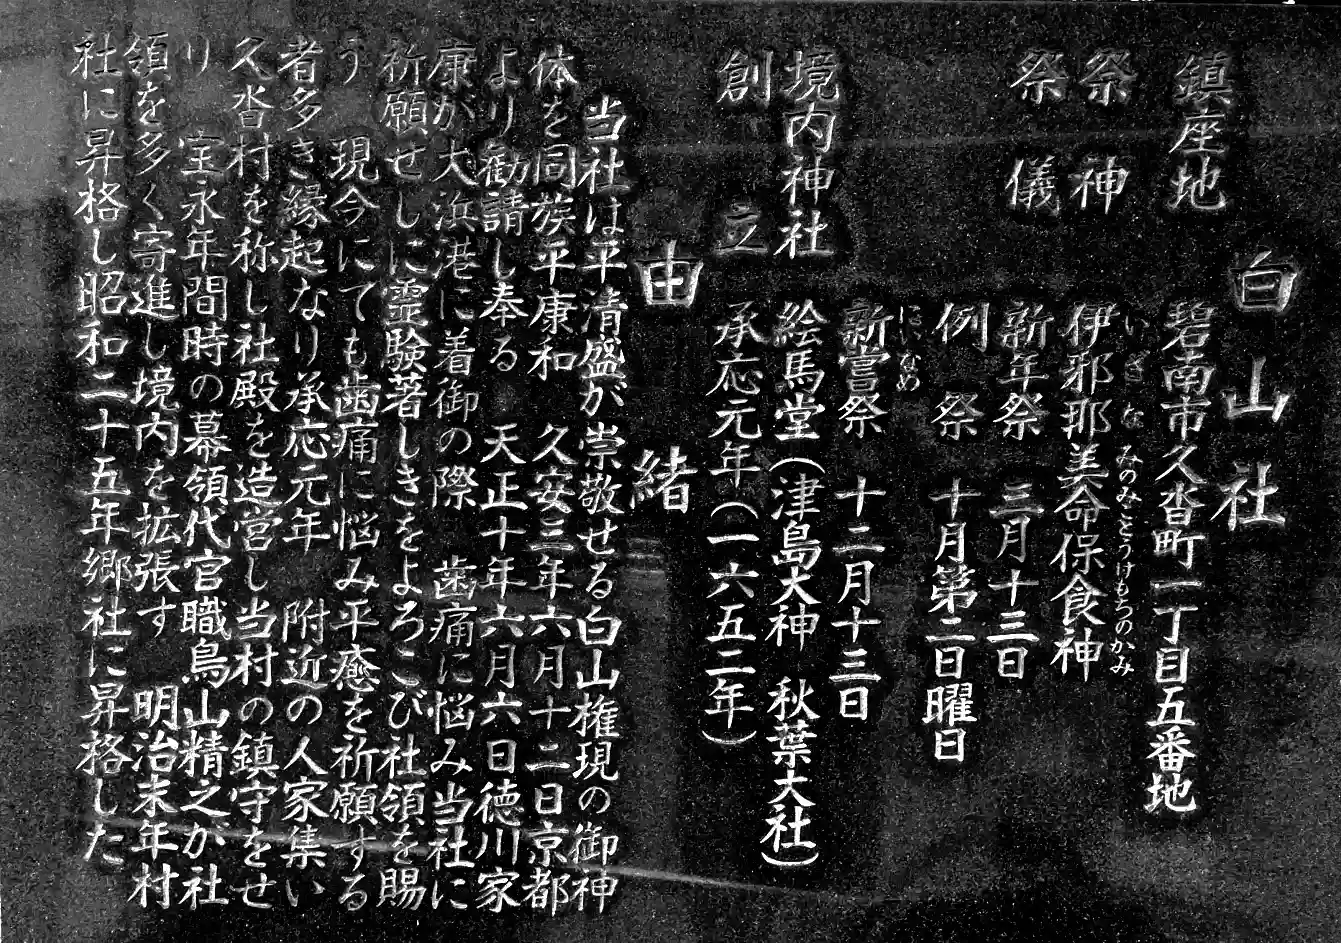 白山社
鎮座地　碧南市久沓町一丁目五番地
祭神　伊邪那美命保食神
いざなみのみことうけもちのかみ
祭儀　新年祭　三月十三日
例祭　十月第二日曜日
新嘗祭　十二月十三日
にいなめ
境内神社　絵馬堂（津島大神　秋葉大社）
創立　承応元年（一六五二年）
由緒
当社は平清盛が崇敬せる白山権現の御神
体を同族平康和　久安三年六月十二日京都
より勧請し奉る　天正十年六月六日徳川家
康が大浜港に着御の際　歯痛に悩み当社に
祈願せしに霊験著しきをよろこび社領を賜
う　現今にても歯痛に悩み平癒を祈願する
者多き縁起なり承応元年　附近の人家集い
久沓村を称し社殿を造営し当村の鎮守をせ
り　宝永年間時の幕領代官職鳥山精之が社
領を多く寄進し境内を拡張す　明治末年村
社に昇格し昭和二十五年郷社に昇格した